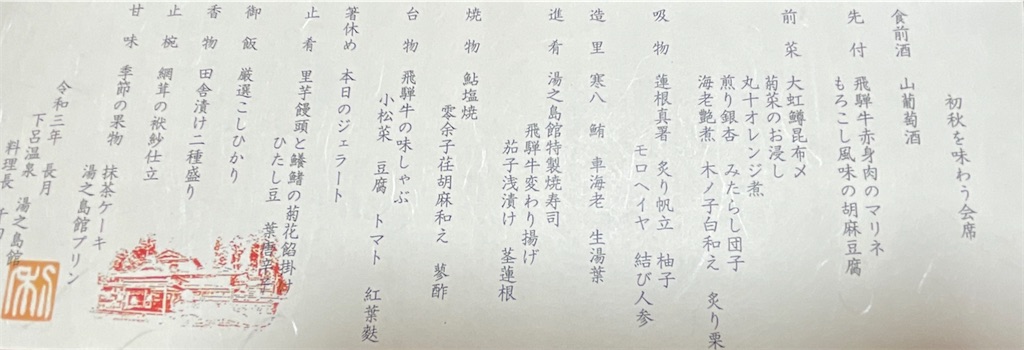 初秋を味わう会席
食前酒 山葡萄酒
先付 飛騨牛赤身肉のマリネ
もろこし風味の胡麻豆腐
前菜 大虹鱒昆布〆
菊菜のお浸し
丸十オレンジ煮
煎り銀杏 みたらし団子
海老艶煮 木ノ子白和え 炙り栗
吸物 蓮根真署 炙り帆立 柚子
モロヘイヤ 結び人参
造里 寒八 鮪 車海老 生湯葉
進肴 湯之島館特製焼寿司
飛騨牛変わり揚げ
茄子浅漬け 茎蓮根
焼物 鮎塩焼
零余子荏胡麻和え 蓼酢
台物 飛騨牛の味しゃぶ
小松菜 豆腐 トマト 紅葉麩
箸休め 本日のジェラート
止肴 里芋饅頭と鱶鰭の菊花餡掛け
ひたし豆 葉唐辛子
御飯 厳選こしひかり
香物 田舎漬け二種盛り
止椀 網茸の袱紗仕立
甘味 季節の果物
抹茶ケーキ
湯之島館プリン
令和三年 長月
下呂温泉 湯之島館
料理長